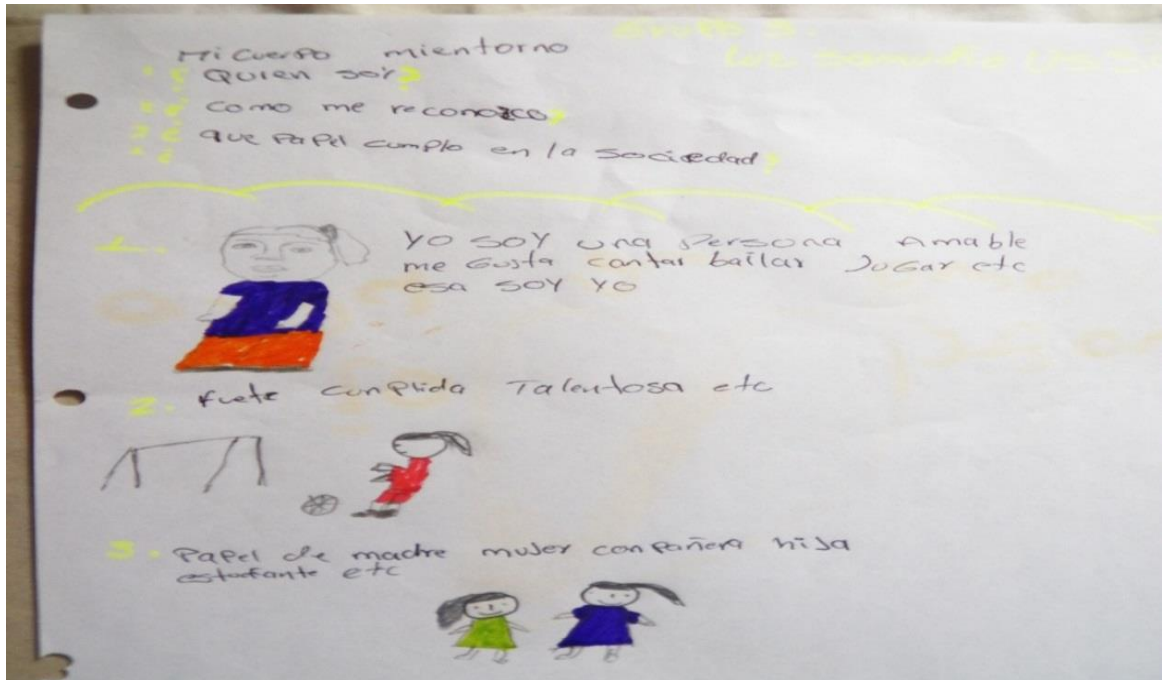 Mi cuerpo mientorno
Quien soy?
como me reconozco?
que papel cumplo en la sociedad?
1.
Yo soy una persona Amable
me Gusta cantar bailar Jugar etc
esa soy yo
2. fuete cunplida Talentosa etc
3. Papel de madre mujer conpañera hija
estudiante etc